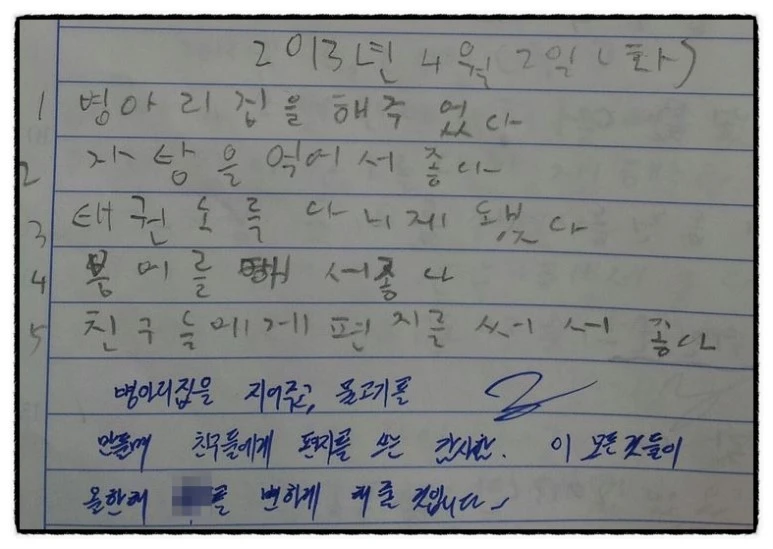 2013년 4월 2일 (화)
1 병아리 집을 해주 었다
2 자탕을 먹어서 좋다
3 태권도를 다니게 됬다
4 를 해서좋다
5 친구들에게 편지를 써서 좋다
병아리집을 지어주고, 물고기를
만들며 친구들에게 편지를 쓰는 감사함. 이 모든것들이
올한해 를 변하게 해 줄 것입니다~